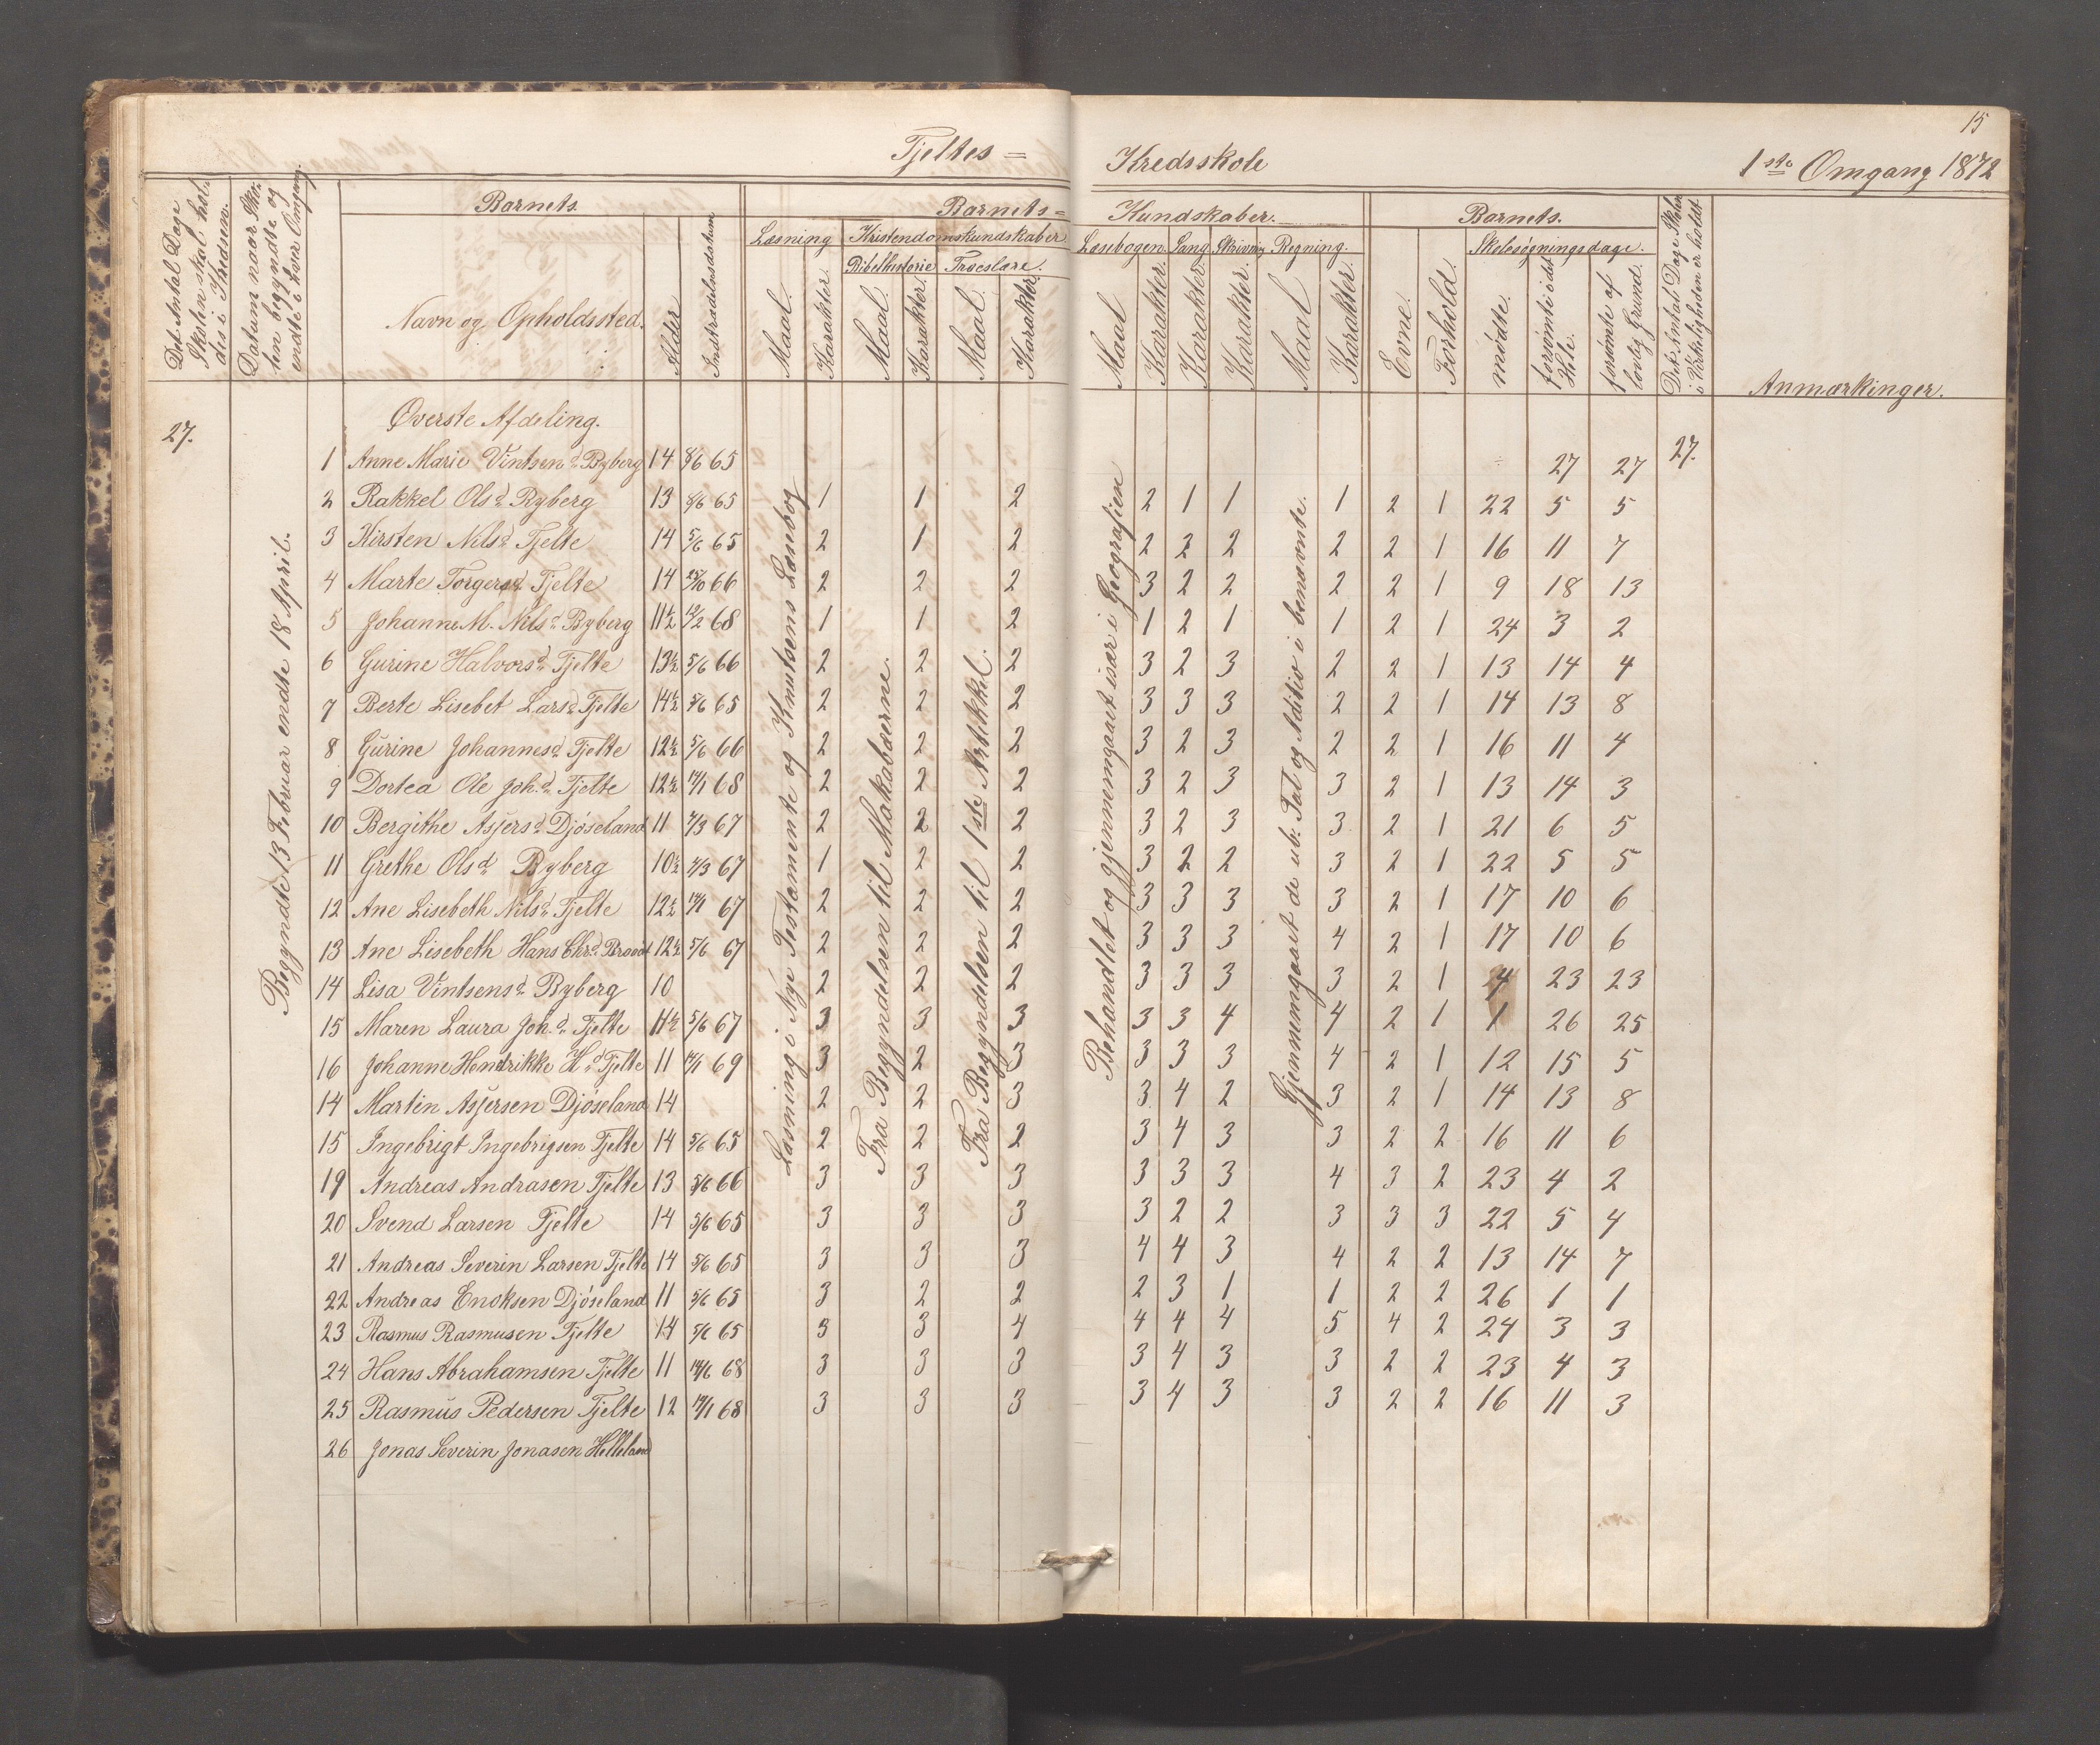 15
Tjeltes = Kredsskole 1ste Omgang 1872
Det Antal Dage Skolen skal holdes i Kredsen.
Datum naar Skolen begyndte og endte i hver Omgang.
Barnets.
Navn og Opholdssted.
Alder
Indtrædelsesdatum
Barnets = Kundskaber.
Læsning
Maal.
Karakter.
Kristendomskundskaber
Bibelhistorie
Maal.
Karakter.
Troeslære.
Maal.
Karakter.
Læsebogen.
Maal
Karakter.
Sang.
Karakter.
Skrivning
Karakter.
Regning.
Maal
Karakter.
Barnets.
Evne.
Forhold.
Skolesøgningsdage.
mødte.
forsømte i det Hele.
forsømte af lovlig Grund.
Det Antal Dage Skolen i Virkeligheden er holdt
Anmærkinger.
27.
Begyndte 13 Februar endte 18 April.
Øverste Afdeling.
Læsning i Nye Testamente og Knutsens Læsebog
Fra Begyndelsen til Makabæerne.
Fra Begyndelsen til 1ste Artikkel.
Behandlet og gjennemgaaet især i Geografien
Gjennemgaaet de ub: Tal og Aditio i benævnte.
27.
1 Anne Marie Vintsend Byberg 14 8/6 65 27 27
2 Rakkel Olsd Byberg 13 8/6 65 1 1 2 2 1 1 1 2 1 22 5 5
3 Kirsten Nilsd Tjelte 14 5/6 65 2 1 2 2 2 2 2 2 1 16 11 7
4 Marte Torgersd Tjelte 14 25/10 66 2 2 2 3 2 2 2 2 1 9 18 13
5 Johanne M. Nilsd Byberg 11½ 12/2 68 1 1 2 1 2 1 1 2 1 24 3 2
6 Gurine Halvorsd Tjelte 13½ 5/6 66 2 2 2 3 2 3 2 2 1 13 14 4
7 Berte Lisebet Larsd Tjelte 14½ 5/6 65 2 2 2 3 3 3 2 2 1 14 13 8
8 Gurine Johannesd Tjelte 12½ 5/6 66 2 2 2 3 2 3 2 2 1 16 11 4
9 Dortea Ole Joh.d Tjelte 12½ 14/1 68 2 2 2 3 2 3 3 2 1 13 14 3
10 Bergithe Asjersd Djøseland 11 7/3 67 2 2 2 3 2 3 3 2 1 21 6 5
11 Grethe Olsd Byberg 10½ 7/3 67 1 2 2 3 2 2 3 2 1 22 5 5
12 Ane Lisebeth Nilsd Tjelte 12½ 14/1 67 2 2 2 3 3 3 3 2 1 17 10 6
13 Ane Lisebeth Hans Chrd 12½ 5/6 67 2 2 2 3 3 3 4 2 1 17 10 6
14 Lisa Vintsensd Byberg 10 2 2 2 3 3 3 3 2 1 4 23 23
15 Maren Laura Joh.d Tjelte 11½ 5/6 67 3 3 3 3 3 4 4 2 1 1 26 25
16 Johanne Hendrikke Hd Tjelte 11 14/1 69 3 2 3 3 3 3 4 2 1 12 15 5
14 Martin Asjersen Djøseland 14 2 2 3 3 4 2 3 2 1 14 13 8
15 Ingebrigt Ingebrigsen Tjelte 14 5/6 65 2 2 2 3 4 3 3 2 2 16 11 6
19 Andreas Andrasen Tjelte 13 5/6 66 3 3 3 3 3 3 4 3 2 23 4 2
20 Svend Larsen Tjelte 14 5/6 65 3 3 3 3 2 2 3 3 3 22 5 4
21 Andreas Severin Larsen Tjelte 14 5/6 65 3 3 3 4 4 3 4 2 2 13 14 7
22 Andreas Enoksen Djøseland 11 5/6 65 3 2 2 2 3 1 1 2 2 26 1 1
23 Rasmus Rasmusen Tjelte 14 5/6 65 3 3 4 4 4 4 5 4 2 24 3 3
24 Hans Abrahamsen Tjelte 11 14/6 68 3 3 3 3 4 3 3 2 2 23 4 3
25 Rasmus Pedersen Tjelte 12 14/1 68 3 3 3 3 4 3 3 2 2 16 11 3
26 Jonas Severin Jonasen Helleland